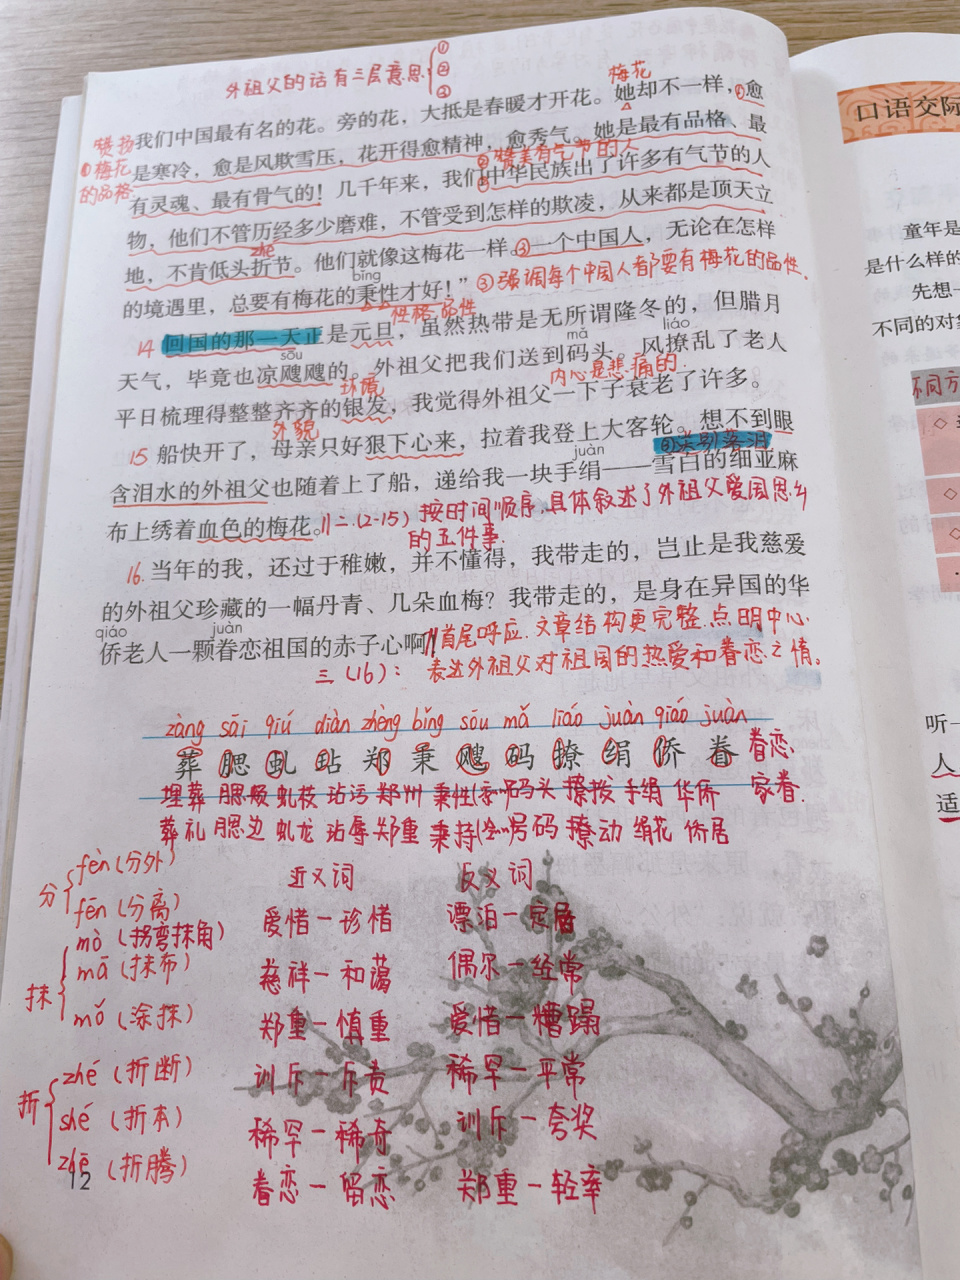 外祖父的话有三层意思 ① ② ③
梅花
我们中国最有名的花。旁的花，大抵是春暖才开花。她却不一样，①愈
赞扬
①梅花
的品格
是寒冷，愈是风欺雪压，花开得愈精神，愈秀气。她是最有品格、最
②赞美有气节的人
有灵魂、最有骨气的！几千年来，我们②中华民族出了许多有气节的人
物，他们不管历经多少磨难，不管受到怎样的欺凌，从来都是顶天立
zhé
地，不肯低头折节。他们就像这梅花一样。③一个中国人，无论在怎样
bǐng
的境遇里，总要有梅花的秉性才好！”
③强调每个中国人都要有梅花的品性.
性格 品性
14 回国的那一天正是元旦，虽然热带是无所谓隆冬的，但腊月
sōu mǎ liáo
天气，毕竟也凉飕飕的。外祖父把我们送到码头。风撩乱了老人
环境 内心是悲痛的.
平日梳理得整整齐齐的银发，我觉得外祖父一下子衰老了许多。
外貌
15 船快开了，母亲只好狠下心来，拉着我登上大客轮。想不到眼
juàn
含泪水的外祖父也随着上了船，递给我一块手绢——雪白的细亚麻
布上绣着血色的梅花。
二.(2-15) 按时间顺序,具体叙述了外祖父爱国思乡
的五件事.
16. 当年的我，还过于稚嫩，并不懂得，我带走的，岂止是我慈爱
的外祖父珍藏的一幅丹青、几朵血梅？我带走的，是身在异国的华
qiáo juàn
侨老人一颗眷恋祖国的赤子心啊！
首尾呼应.文章结构更完整.点明中心.
三(16)： 表达外祖父对祖国的热爱和眷恋之情。
zàng sāi qiú diàn zhèng bǐng sōu mǎ liáo juàn qiáo juàn
葬 腮 虬 玷 郑 秉 飕 码 撩 绢 侨 眷 眷恋.
埋葬 腮颊 虬枝 玷污 郑州 秉性 码头 撩拨 手绢 华侨 家眷.
葬礼 腮边 虬龙 玷辱 郑重 秉持 号码 撩动 绢花 侨居
分 fèn(分外)
fēn(分离)
抹 mò(拐弯抹角)
mā(抹布)
mǒ(涂抹)
折 zhé(折断)
shé(折本)
zhē(折腾)
近义词
爱惜—珍惜
慈祥—和蔼
郑重—慎重
训斥—斥责
稀罕—稀奇
眷恋—留恋
反义词
漂泊—定居
偶尔—经常
爱惜—糟蹋
稀罕—平常
训斥—夸奖
郑重—轻率
12
口语交际
童年是
是什么样的
先想一
不同的对象
不同方
听一
人
适